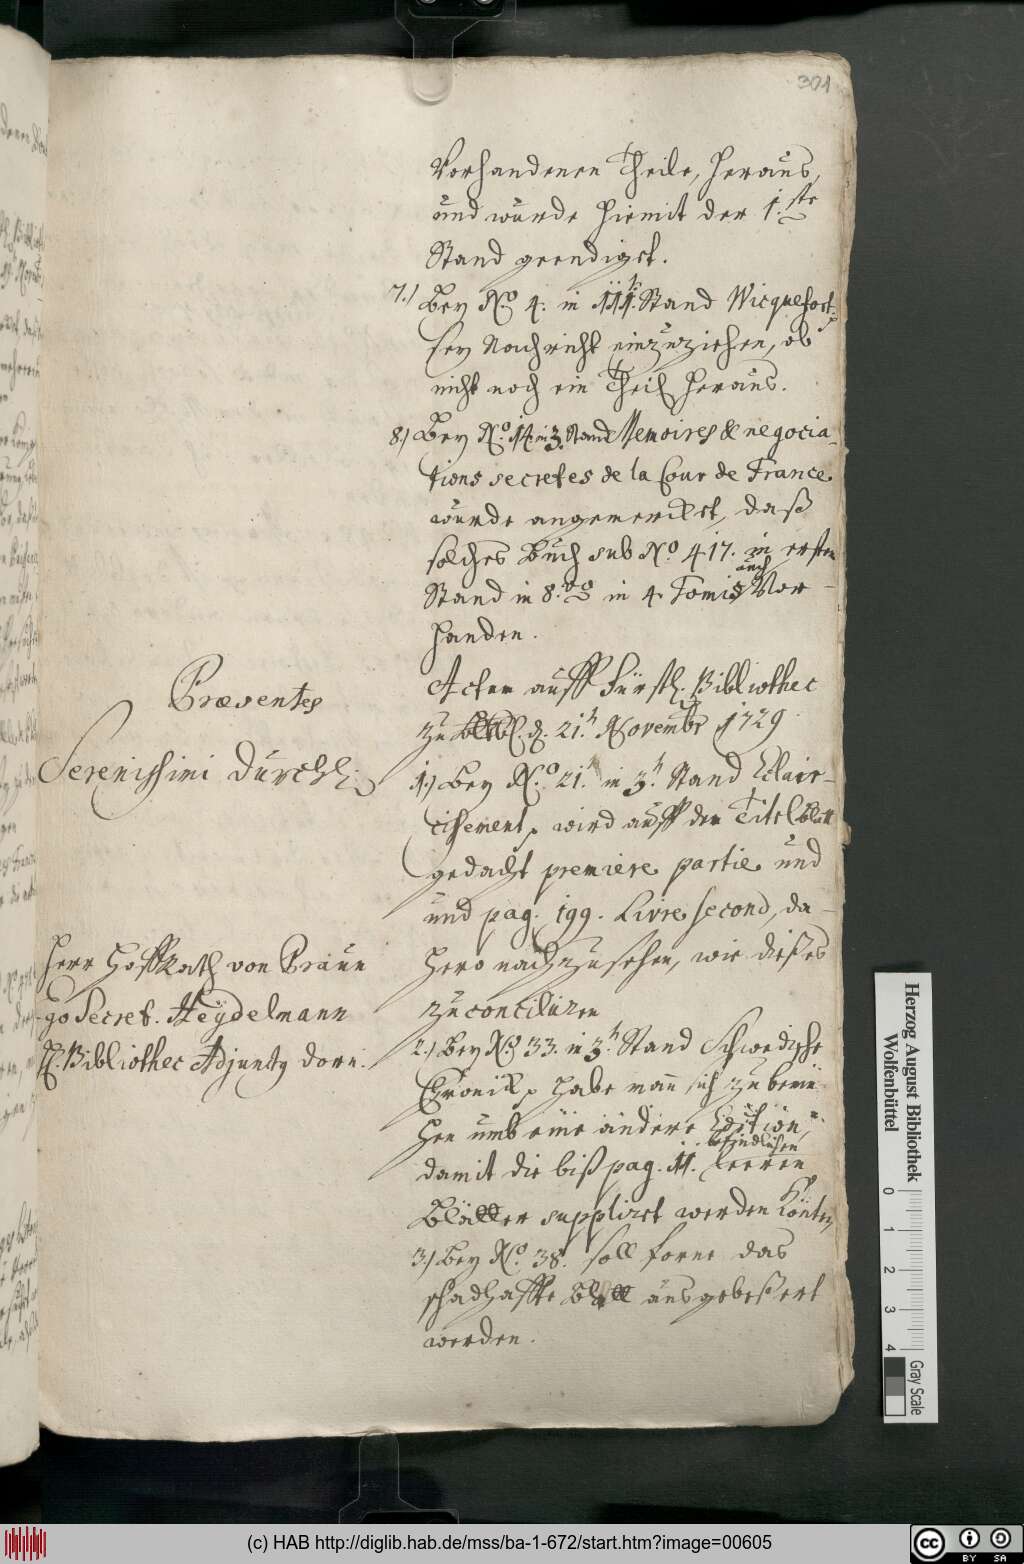 301
Vorhandenen Theile, heraus,
und wurde hiemit der 1.ste
Stand geendiget.
7.) Bey No. 4. in III.t Stand Wicquefort
sey Nachricht einzuziehen, ob
nicht noch ein Theil heraus.
8.) Bey No. 14 in 3. Stand Memoires & negocia-
tions secretes de la Cour de France
wurde angemerckt, daß
solches Buch sub No. 417. in ersten
Stand in 8.vo in 4. Tomis auch Vor-
handen.
Præsentes
Serenissimi Durchl.
Herr Hoffrath von Praun
Secret. Heÿdelmann
Bibliothec Adjunctg Dorn.
Actum auff Fürstl. Bibliothec
zu d. 21.t Novembr 1729
1.) Bey No. 21. in 3.t Stand Eclair-
cissement, wird auff dem Titelblatt
gedacht premiere partie und
und pag. 199. Livre second, da-
hero nachzusehen, wie dießes
zu conciliiren
2.) Bey No. 33. in 3.t Stand Schwedische
Chronik, habe mann sich zu bemü-
hen umb eine andere Edition,
damit die biß pag. 11. befindlichen leeren
Blätter supplirt werden könten,
3.) Bey No. 38. soll forne das
schadhaffte Blatt ausgebeßert
werden.
Herzog August Bibliothek
Wolfenbüttel
0 1 2 3 4
Gray Scale
(c) HAB http://diglib.hab.de/mss/ba-1-672/start.htm?image=00605
cc BY SA